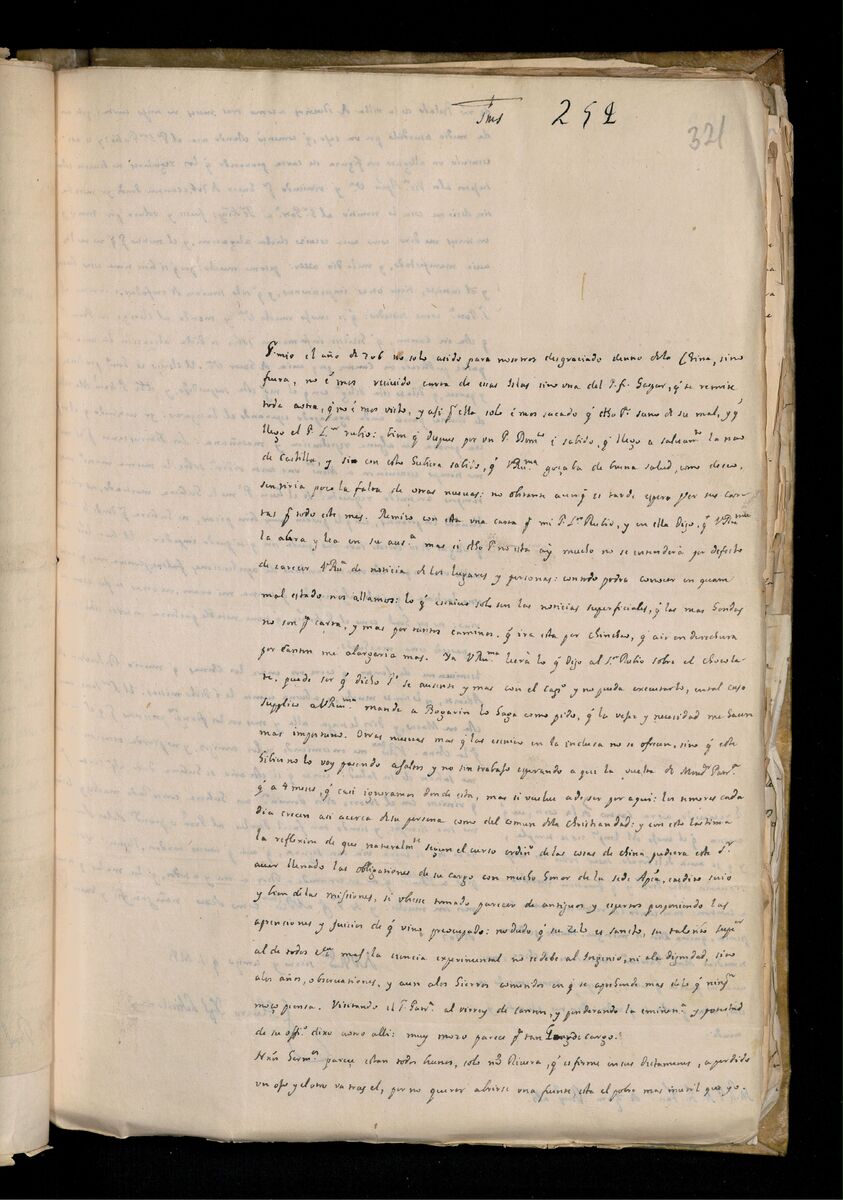 Jhs 252
321
P. mio el año de 706 no solo a sido para nosotros desgraciado dentro dela China, sino
fuera, no emos reciuido carta de essas Islas sino una del P. f. Gaspar, q̃ se remite
toda a otra, q̃ no emos visto, y asi p.ʳ ella solo emos sacado q̃ esso P.ᵉ sano de su mal, y q̃
llego el P. L.ᵗᵒ rubio: bien q̃ despues por un P. Dom.ᶜᵒ e sabido, q̃ llego a saluam.ᵗᵒ la nao
de Castilla, y si con esto hubiera sabido, q̃ V Ru.ᵐᵃ goçaba de buena salud, como deseo,
sentiria poco la falta de otras nueuas: no obstante aunq̃ es tarde espero ver sus car
tas p.ʳ todo este mes. Remito con esta una carta p.ᵃ mi P. L.ᵒʳ Rubio, y en ella digo, q̃ V Ru.ᵐᵃ
la abra y lea en su aus.ᵃ mas si esso P.ᵉ no esta ay mucho no se entenderà por defecto
de carecer V Ru.ᵃ de noticia de los lugares y personas: con todo podra conocer en quan
mal estado nos allamos: lo q̃ escriuo solo son las noticias superficiales, q̃ las mas hondas
no son p.ᵃ carta, y mas por tantos caminos. q̃ ira esta por Chincheo, q̃ a ir en derechura
por Canton me alargaria mas. Ya V Ru.ᵐᵃ leerà lo q̃ digo al P. Rubio sobre el chocola
te, puede ser q̃ dicho P.ᵉ se ausente y mas con el cap.ᵒ y no pueda executarlo, en tal caso
supplico a V Ru.ᵐᵃ mande a Bogarin lo haga como pido, q̃ la vejez y necesidad me hacen
mas importuno. Otras nueuas mas q̃ las escriuo en la inclusa no se ofrecen, sino q̃ este
hibierno lo voy pasando a saltos y no sin trabajo esperando a que la vuelta de Mons.ʳ Patr.ᶜᵃ
q̃ a 4 meses, q̃ casi ignoramos donde esta, mas si vuelue a de ser por aqui: los temores cada
dia crecen asi acerca de su persona como del comun dela Christiandad: y con esto lastima
la reflexion de que naturalm.ᵗᵉ segun el curso ordin.ᵒ de las cosas de China pudiera este S.ʳ
auer llenado las obligaciones de su cargo con mucho honor de la sede Ap.ᶜᵃ, credito suio
y bien de las missiones, si ubiese tomado parecer de antiguos y expertos posponiendo las
aprensiones y juicios de q̃ vino preocupado: no dudo q̃ su zelo es sancto, su talento super.ʳ
al de todos etc.ᵃ mas la ciencia experimental no se debe al Ingenio, ni a la dignidad, sino
a los años, obseruaciones, y aun a los hierros cometidos en q̃ se aprehende mas delo q̃ ning.ⁿ
moço piensa. Visitando el S. Patr.ᶜᵃ al virrey de Canton, y ponderando la eminen.ᵃ y potestad
de su offi.ᵒ dixo aotro alli: muy mozo parece p.ᵃ tan grande cargo.
Nrõs herm.ᵒˢ parece estan todos buenos, solo nrõ Riuera, q̃ es firme en sus dictamenes, a perdido
un ojo y el otro va tras el, por no querer abrirse una fuente esta el pobre mas inutil que yo.